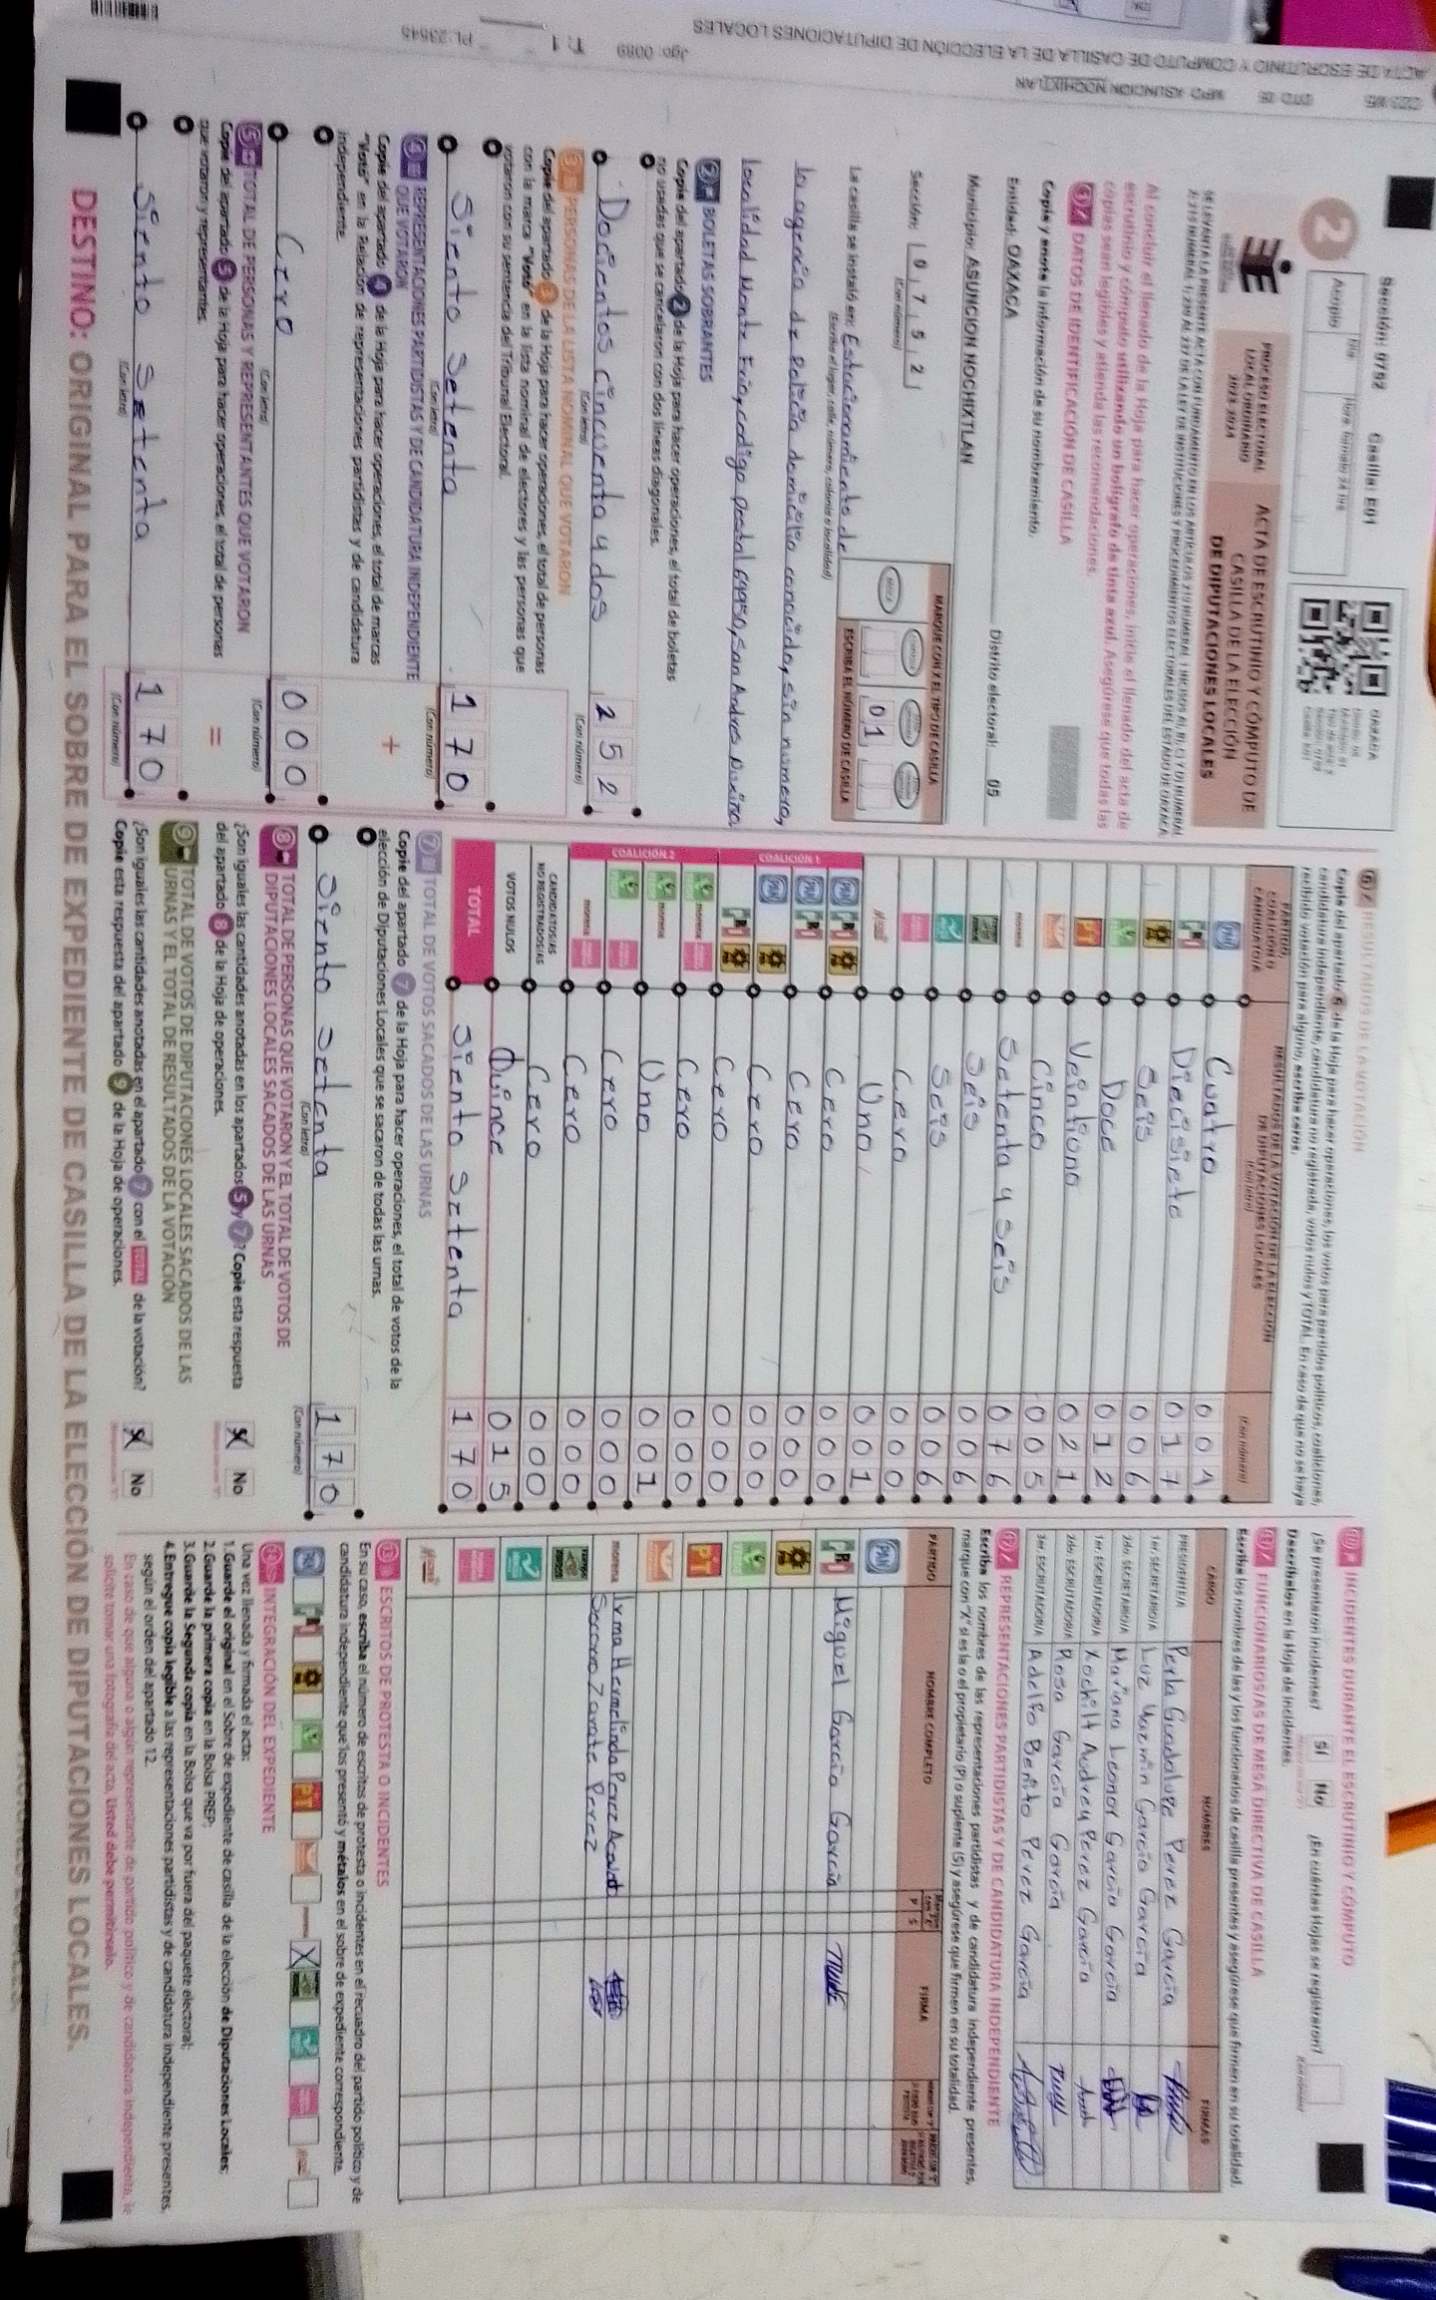 ACTA DE ESCRUTINIO Y CÓMPUTO DE CASILLA DE LA ELECCIÓN DE DIPUTACIONES LOCALES
MPO: ASUNCION NOCHIXTLAN
DTO: 05
Jgo: 0089
T: 1
PL: 23545
Sección: 0752 Casilla: E01
2
Acopio
OAXACA
PROCESO ELECTORAL
LOCAL ORDINARIO
2023-2024
ACTA DE ESCRUTINIO Y CÓMPUTO DE
CASILLA DE LA ELECCIÓN
DE DIPUTACIONES LOCALES
Al concluir el llenado de la Hoja para hacer operaciones, inicie el llenado del acta de
escrutinio y cómputo utilizando un bolígrafo de tinta azul. Asegúrese que todas las
copias sean legibles y atienda las recomendaciones.
1 DATOS DE IDENTIFICACIÓN DE CASILLA
Copie y anote la información de su nombramiento.
Entidad: OAXACA
Distrito electoral: 05
Municipio: ASUNCION NOCHIXTLAN
Sección: 0 7 5 2
(Con número)
MARQUE CON X EL TIPO DE CASILLA
ESCRIBA EL NÚMERO DE CASILLA
0 1
La casilla se instaló en: Estacionamiento de
(Escriba el lugar, calle, número, colonia o localidad)
la agencia de Policía domicilio conocido, sin numero,
localidad Monte Frio, codigo postal 69950, San Andres Nuxiño
2 BOLETAS SOBRANTES
Copie del apartado 2 de la Hoja para hacer operaciones, el total de boletas
no usadas que se cancelaron con dos líneas diagonales.
Docientos cincuenta y dos 2 5 2
(Con letra) (Con número)
3 PERSONAS DE LA LISTA NOMINAL QUE VOTARON
Copie del apartado 3 de la Hoja para hacer operaciones, el total de personas
con la marca "Votó" en la lista nominal de electores y las personas que
votaron con su sentencia del Tribunal Electoral.
Siento setenta 1 7 0
(Con letra) (Con número)
4 REPRESENTACIONES PARTIDISTAS Y DE CANDIDATURA INDEPENDIENTE
QUE VOTARON
+
Copie del apartado 4 de la Hoja para hacer operaciones, el total de marcas
"Votó" en la Relación de representaciones partidistas y de candidatura
independiente.
Cero 0 0 0
(Con letra) (Con número)
5 TOTAL DE PERSONAS Y REPRESENTANTES QUE VOTARON
=
Copie del apartado 5 de la Hoja para hacer operaciones, el total de personas
que votaron y representantes.
Siento setenta 1 7 0
(Con letra) (Con número)
6 RESULTADOS DE LA VOTACIÓN
Copie del apartado 6 de la Hoja para hacer operaciones, los votos para partidos políticos, coaliciones,
candidatura independiente, candidatura no registrada, votos nulos y TOTAL. En caso de que no se haya
recibido votación para alguno, escriba ceros.
PARTIDO,
COALICIÓN O
CANDIDATO/A
RESULTADOS DE LA VOTACIÓN DE LA ELECCIÓN
DE DIPUTACIONES LOCALES
(Con letra)
(Con número)
PAN Cuatro 0 0 4
PRI Diecisiete 0 1 7
Seis 0 0 6
Doce 0 1 2
PT Veintiuno 0 2 1
Cinco 0 0 5
morena Setenta y seis 0 7 6
Seis 0 0 6
Seis 0 0 6
Cero 0 0 0
Uno 0 0 1
COALICIÓN 1
Cero 0 0 0
Cero 0 0 0
Cero 0 0 0
Cero 0 0 0
COALICIÓN 2
Cero 0 0 0
Uno 0 0 1
Cero 0 0 0
Cero 0 0 0
CANDIDATOS/AS
NO REGISTRADOS/AS Cero 0 0 0
VOTOS NULOS Quince 0 1 5
TOTAL Siento setenta 1 7 0
7 TOTAL DE VOTOS SACADOS DE LAS URNAS
Copie del apartado 7 de la Hoja para hacer operaciones, el total de votos de la
elección de Diputaciones Locales que se sacaron de todas las urnas.
Siento setenta 1 7 0
(Con letra) (Con número)
8 TOTAL DE PERSONAS QUE VOTARON Y EL TOTAL DE VOTOS DE
DIPUTACIONES LOCALES SACADOS DE LAS URNAS
¿Son iguales las cantidades anotadas en los apartados 5 y 7? Copie esta respuesta
del apartado 8 de la Hoja de operaciones.
Sí No
9 TOTAL DE VOTOS DE DIPUTACIONES LOCALES SACADOS DE LAS
URNAS Y EL TOTAL DE RESULTADOS DE LA VOTACIÓN
¿Son iguales las cantidades anotadas en el apartado 7 con el TOTAL de la votación?
Copie esta respuesta del apartado 9 de la Hoja de operaciones.
Sí No
10 INCIDENTES DURANTE EL ESCRUTINIO Y CÓMPUTO
¿Se presentaron incidentes? Sí No ¿En cuántas Hojas se registraron?
Descríbalos en la Hoja de incidentes.
11 FUNCIONARIOS/AS DE MESA DIRECTIVA DE CASILLA
Escriba los nombres de las y los funcionarios de casilla presentes y asegúrese que firmen en su totalidad.
CARGO NOMBRES FIRMAS
PRESIDENTE/A Perla Guadalupe Perez Garcia
1er. SECRETARIO/A Luz Yazmin Garcia Garcia
2do. SECRETARIO/A Mariana Leonor Garcia Garcia
1er. ESCRUTADOR/A Xochilt Audrey Perez Garcia
2do. ESCRUTADOR/A Rosa Garcia Garcia
3er. ESCRUTADOR/A Adelfo Benito Perez Garcia
12 REPRESENTACIONES PARTIDISTAS Y DE CANDIDATURA INDEPENDIENTE
Escriba los nombres de las representaciones partidistas y de candidatura independiente presentes,
marque con "X" si es la o el propietario (P) o suplente (S) y asegúrese que firmen en su totalidad.
PARTIDO NOMBRE COMPLETO P S FIRMA
PAN
PRI Miguel Garcia Garcia
PT
morena Irma Hermelinda Perez
Socorro Zarate Perez
13 ESCRITOS DE PROTESTA O INCIDENTES
En su caso, escriba el número de escritos de protesta o incidentes en el recuadro del partido político y de
candidatura independiente que los presentó y métalos en el sobre de expediente correspondiente.
14 INTEGRACIÓN DEL EXPEDIENTE
Una vez llenada y firmada el acta:
1. Guarde el original en el Sobre de expediente de casilla de la elección de Diputaciones Locales;
2. Guarde la primera copia en la Bolsa PREP;
3. Guarde la Segunda copia en la Bolsa que va por fuera del paquete electoral;
4. Entregue copia legible a las representaciones partidistas y de candidatura independiente presentes,
según el orden del apartado 12.
En caso de que alguna o algún representante de partido político y de candidatura independiente, le
solicite tomar una fotografía del acta, Usted debe permitírselo.
DESTINO: ORIGINAL PARA EL SOBRE DE EXPEDIENTE DE CASILLA DE LA ELECCIÓN DE DIPUTACIONES LOCALES.